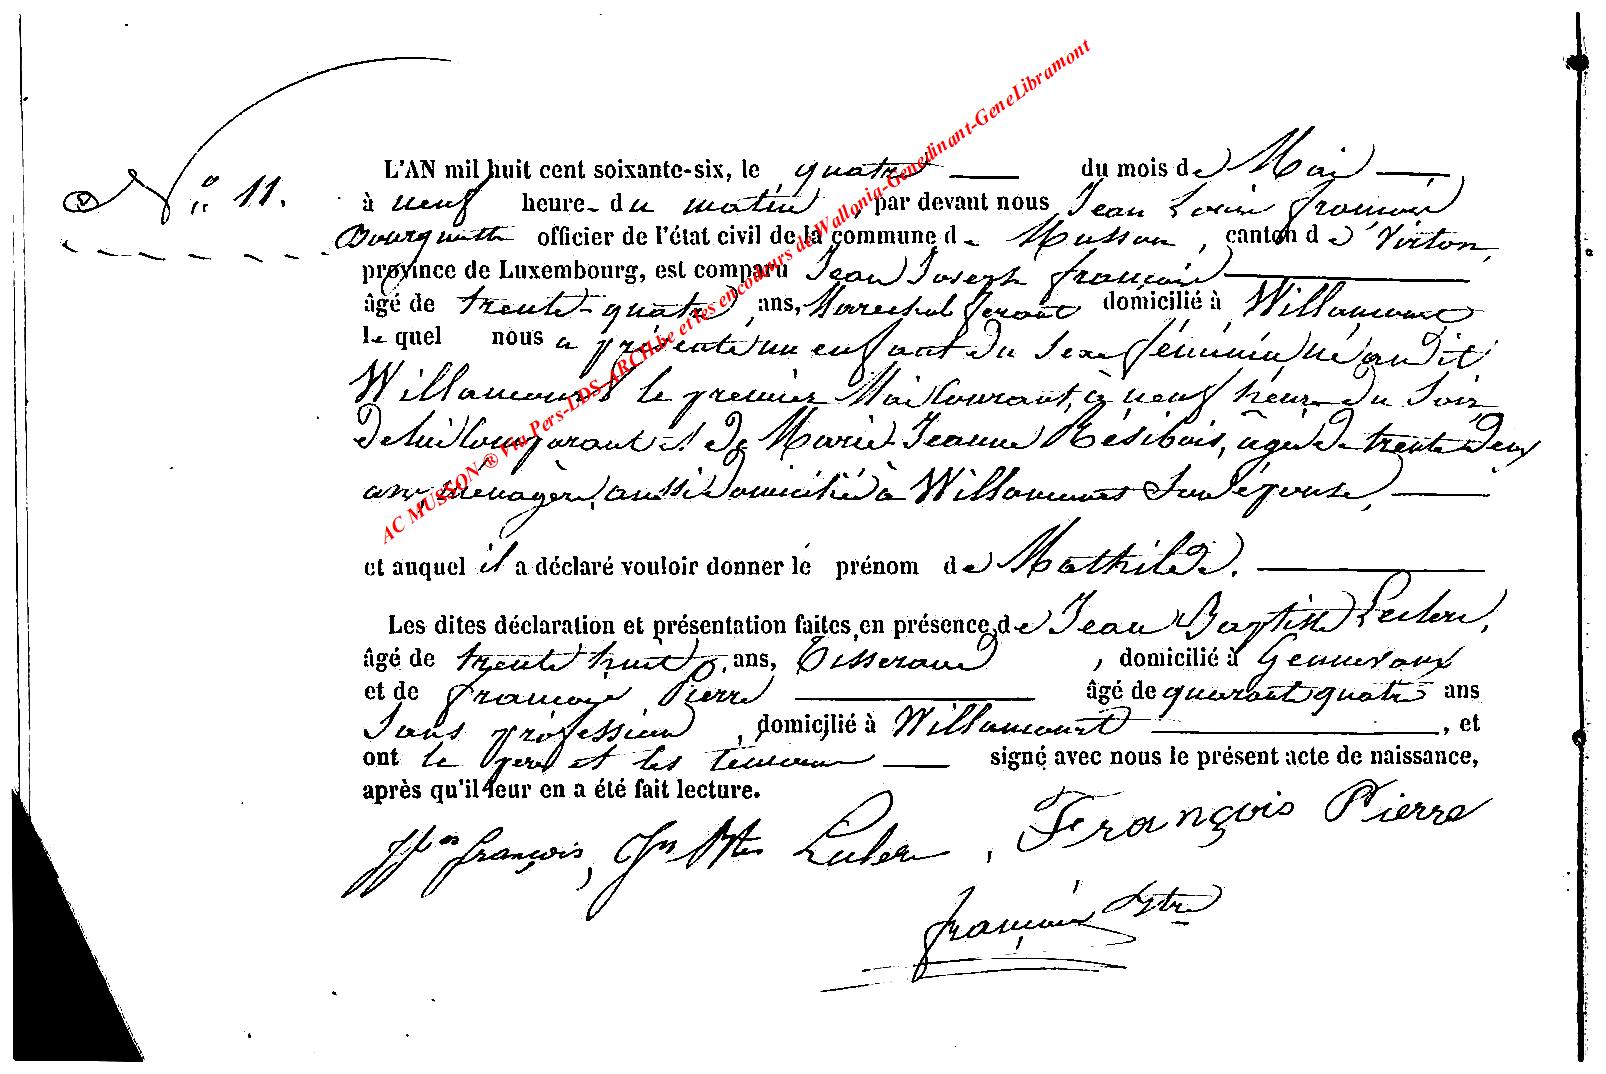 N° 11.
L'AN mil huit cent soixante-six, le quatre du mois de Mai
à neuf heure du matin, par devant nous Jean Louis François
officier de l'état civil de la commune de Musson, canton de Virton,
province de Luxembourg, est comparu Jean Joseph François
âgé de trente-quatre ans, Marechal ferant domicilié à Willancourt
lequel nous a présenté un enfant du sexe féminin, né au dit
Willancourt le premier Mai courant, à neuf heure du soir,
de lui comparant et de Marie-Jeanne Résibois, âgée de trente deux
ans ménagère, aussi domiciliée à Willancourt son épouse,
et auquel il a déclaré vouloir donner le prénom de Mathilde.
Les dites déclaration et présentation faites en présence de Jean Baptiste Leclere,
âgé de trente huit ans, Tisserand, domicilié à Gennevaux
et de François Pierre âgé de quarant quatre ans
Sans profession, domicilié à Willancourt, et
ont le père et les temoins signé avec nous le présent acte de naissance,
après qu'il leur en a été fait lecture.
François, Jn Bte Leclere, François Pierre
François
AC MUSSON ® Via Pers-LDS-ARCH.be et les encodeurs de Wallonia-Genedinant-GeneLibramont